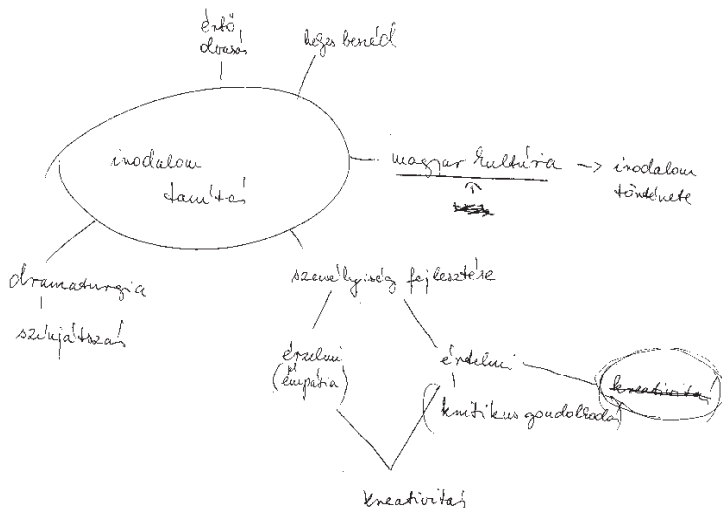 értő
olvasás
helyes beszéd
irodalom
tanítás
magyar kultúra → irodalom
története
dramaturgia
színjátszás
személyiség fejlesztése
érzelmi
(empátia)
értelmi
(kritikus gondolkodás)
kreativitás
kreativitás